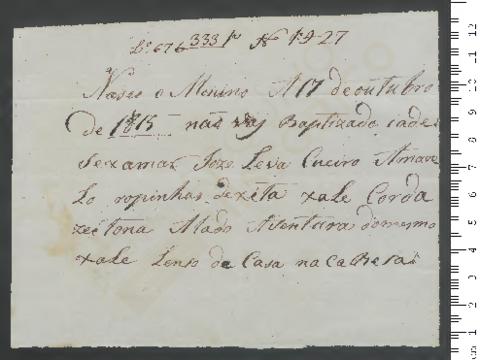 Lº 676 333 Nº 1927
Naseo o Menino A 17 de outubro
de 1815 nao vaj Baptizado iade
sexamar Joze Leva Cueiro Amare
lo ropinhas dexita xale Corda
zeitona Atado Asentura domesmo
xale Lenso de Casa na Cabesa